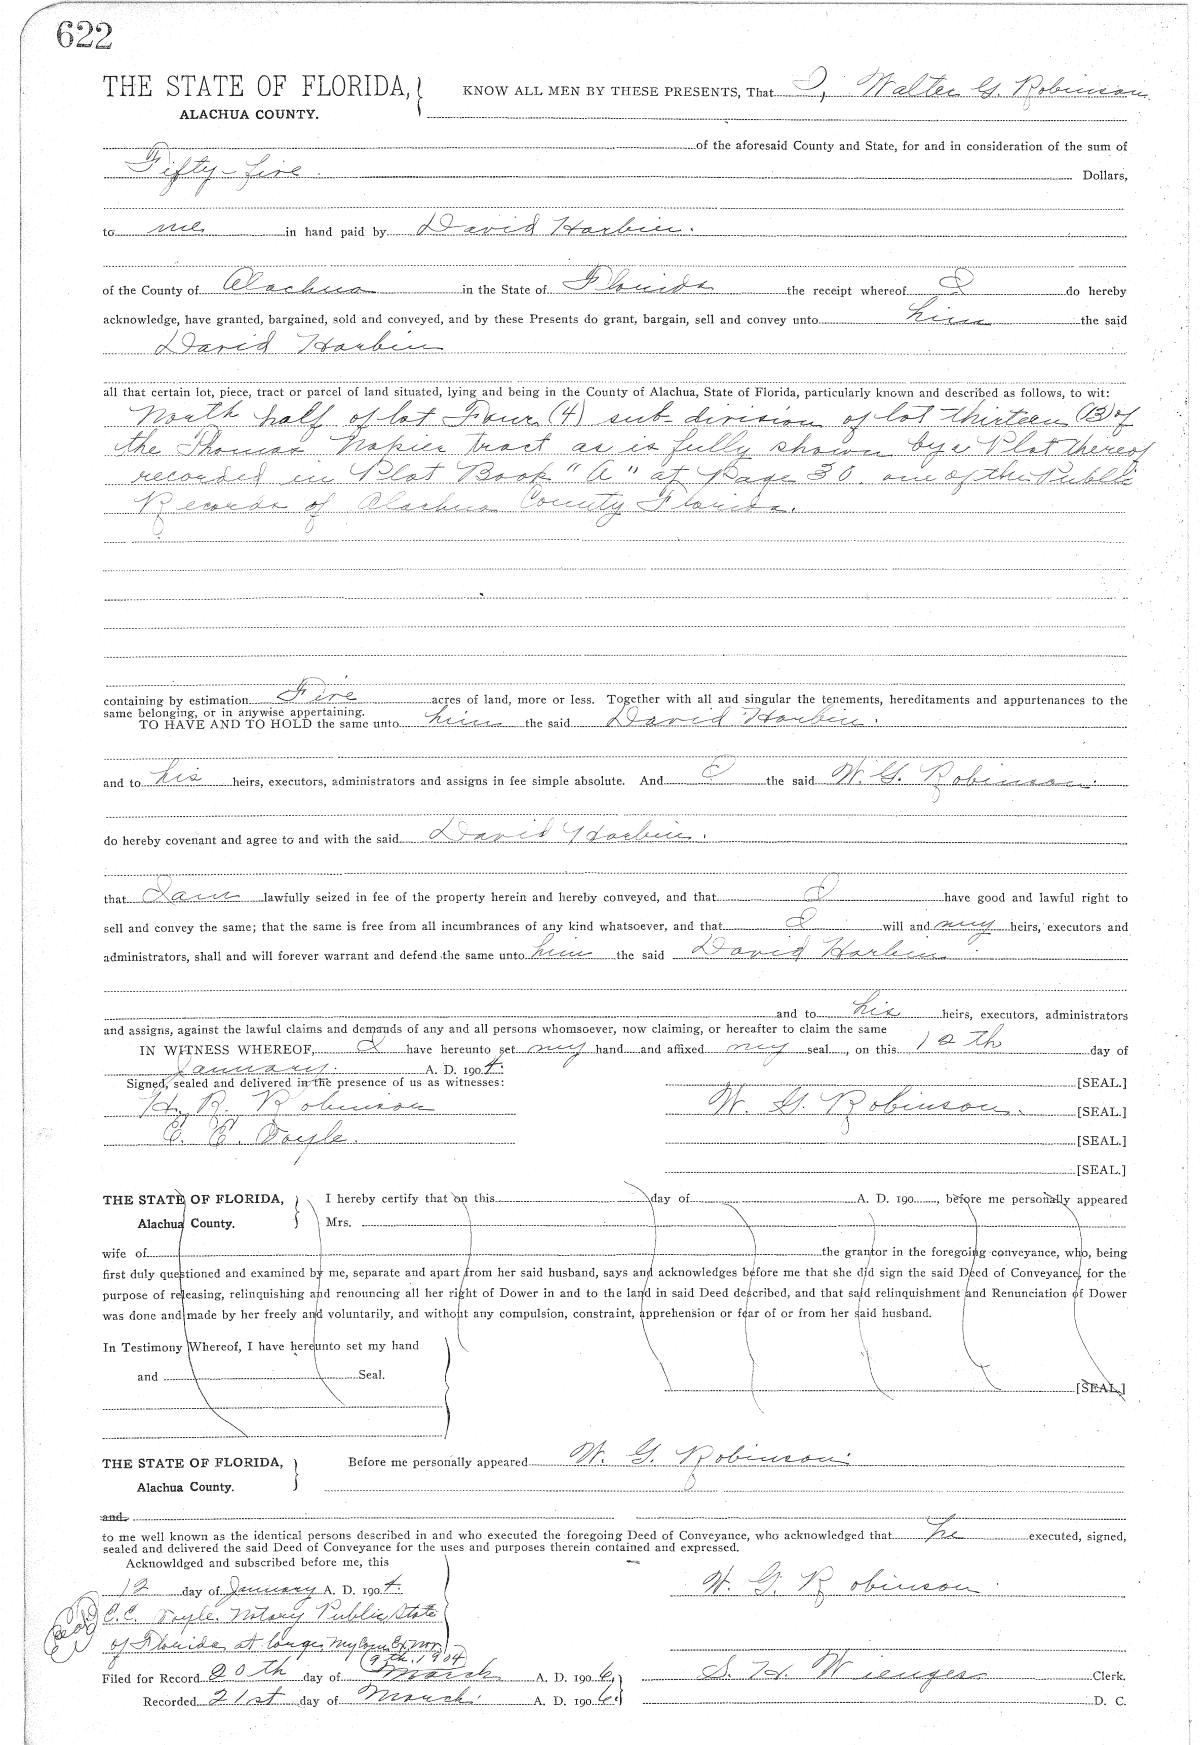 622
THE STATE OF FLORIDA, KNOW ALL MEN BY THESE PRESENTS, That I, Walter G. Robinson
ALACHUA COUNTY.
of the aforesaid County and State, for and in consideration of the sum of
Fifty-five Dollars,
to me in hand paid by David Harbin.
of the County of Alachua in the State of Florida the receipt whereof I do hereby
acknowledge, have granted, bargained, sold and conveyed, and by these Presents do grant, bargain, sell and convey unto him the said
David Harbin
all that certain lot, piece, tract or parcel of land situated, lying and being in the County of Alachua, State of Florida, particularly known and described as follows, to wit:
North half of lot Four (4) sub-division of lot thirteen (13) of
the Thomas Napier tract as is fully shown by a Plat thereof
recorded in Plat Book "A" at Page 30. one of the Public
Records of Alachua County Florida.
containing by estimation Five acres of land, more or less. Together with all and singular the tenements, hereditaments and appurtenances to the
same belonging, or in anywise appertaining.
TO HAVE AND TO HOLD the same unto him the said David Harbin.
and to his heirs, executors, administrators and assigns in fee simple absolute. And I the said W. G. Robinson.
do hereby covenant and agree to and with the said David Harbin.
that I am lawfully seized in fee of the property herein and hereby conveyed, and that I have good and lawful right to
sell and convey the same; that the same is free from all incumbrances of any kind whatsoever, and that I will and my heirs, executors and
administrators, shall and will forever warrant and defend the same unto him the said David Harbin
and to his heirs, executors, administrators
and assigns, against the lawful claims and demands of any and all persons whomsoever, now claiming, or hereafter to claim the same
IN WITNESS WHEREOF, I have hereunto set my hand and affixed my seal, on this 12th day of
January. A. D. 1904.
Signed, sealed and delivered in the presence of us as witnesses: [SEAL.]
H. R. Robinson W. G. Robinson. [SEAL.]
C. C. Voyle. [SEAL.]
[SEAL.]
THE STATE OF FLORIDA, I hereby certify that on this day of A. D. 190 , before me personally appeared
Alachua County. Mrs.
wife of the grantor in the foregoing conveyance, who, being
first duly questioned and examined by me, separate and apart from her said husband, says and acknowledges before me that she did sign the said Deed of Conveyance, for the
purpose of releasing, relinquishing and renouncing all her right of Dower in and to the land in said Deed described, and that said relinquishment and Renunciation of Dower
was done and made by her freely and voluntarily, and without any compulsion, constraint, apprehension or fear of or from her said husband.
In Testimony Whereof, I have hereunto set my hand
and Seal.
[SEAL.]
THE STATE OF FLORIDA, Before me personally appeared W. G. Robinson.
Alachua County.
and
to me well known as the identical persons described in and who executed the foregoing Deed of Conveyance, who acknowledged that he executed, signed,
sealed and delivered the said Deed of Conveyance for the uses and purposes therein contained and expressed.
Acknowldged and subscribed before me, this
12 day of January A. D. 1904. W. G. Robinson.
Seal C.C. Voyle. Notary Public State
of Florida at large. My Com Ex Nov.
9th. 1904
Filed for Record 20th day of March A. D. 1906, S. H. Wienges Clerk.
Recorded 21st day of March. A. D. 1906. D. C.